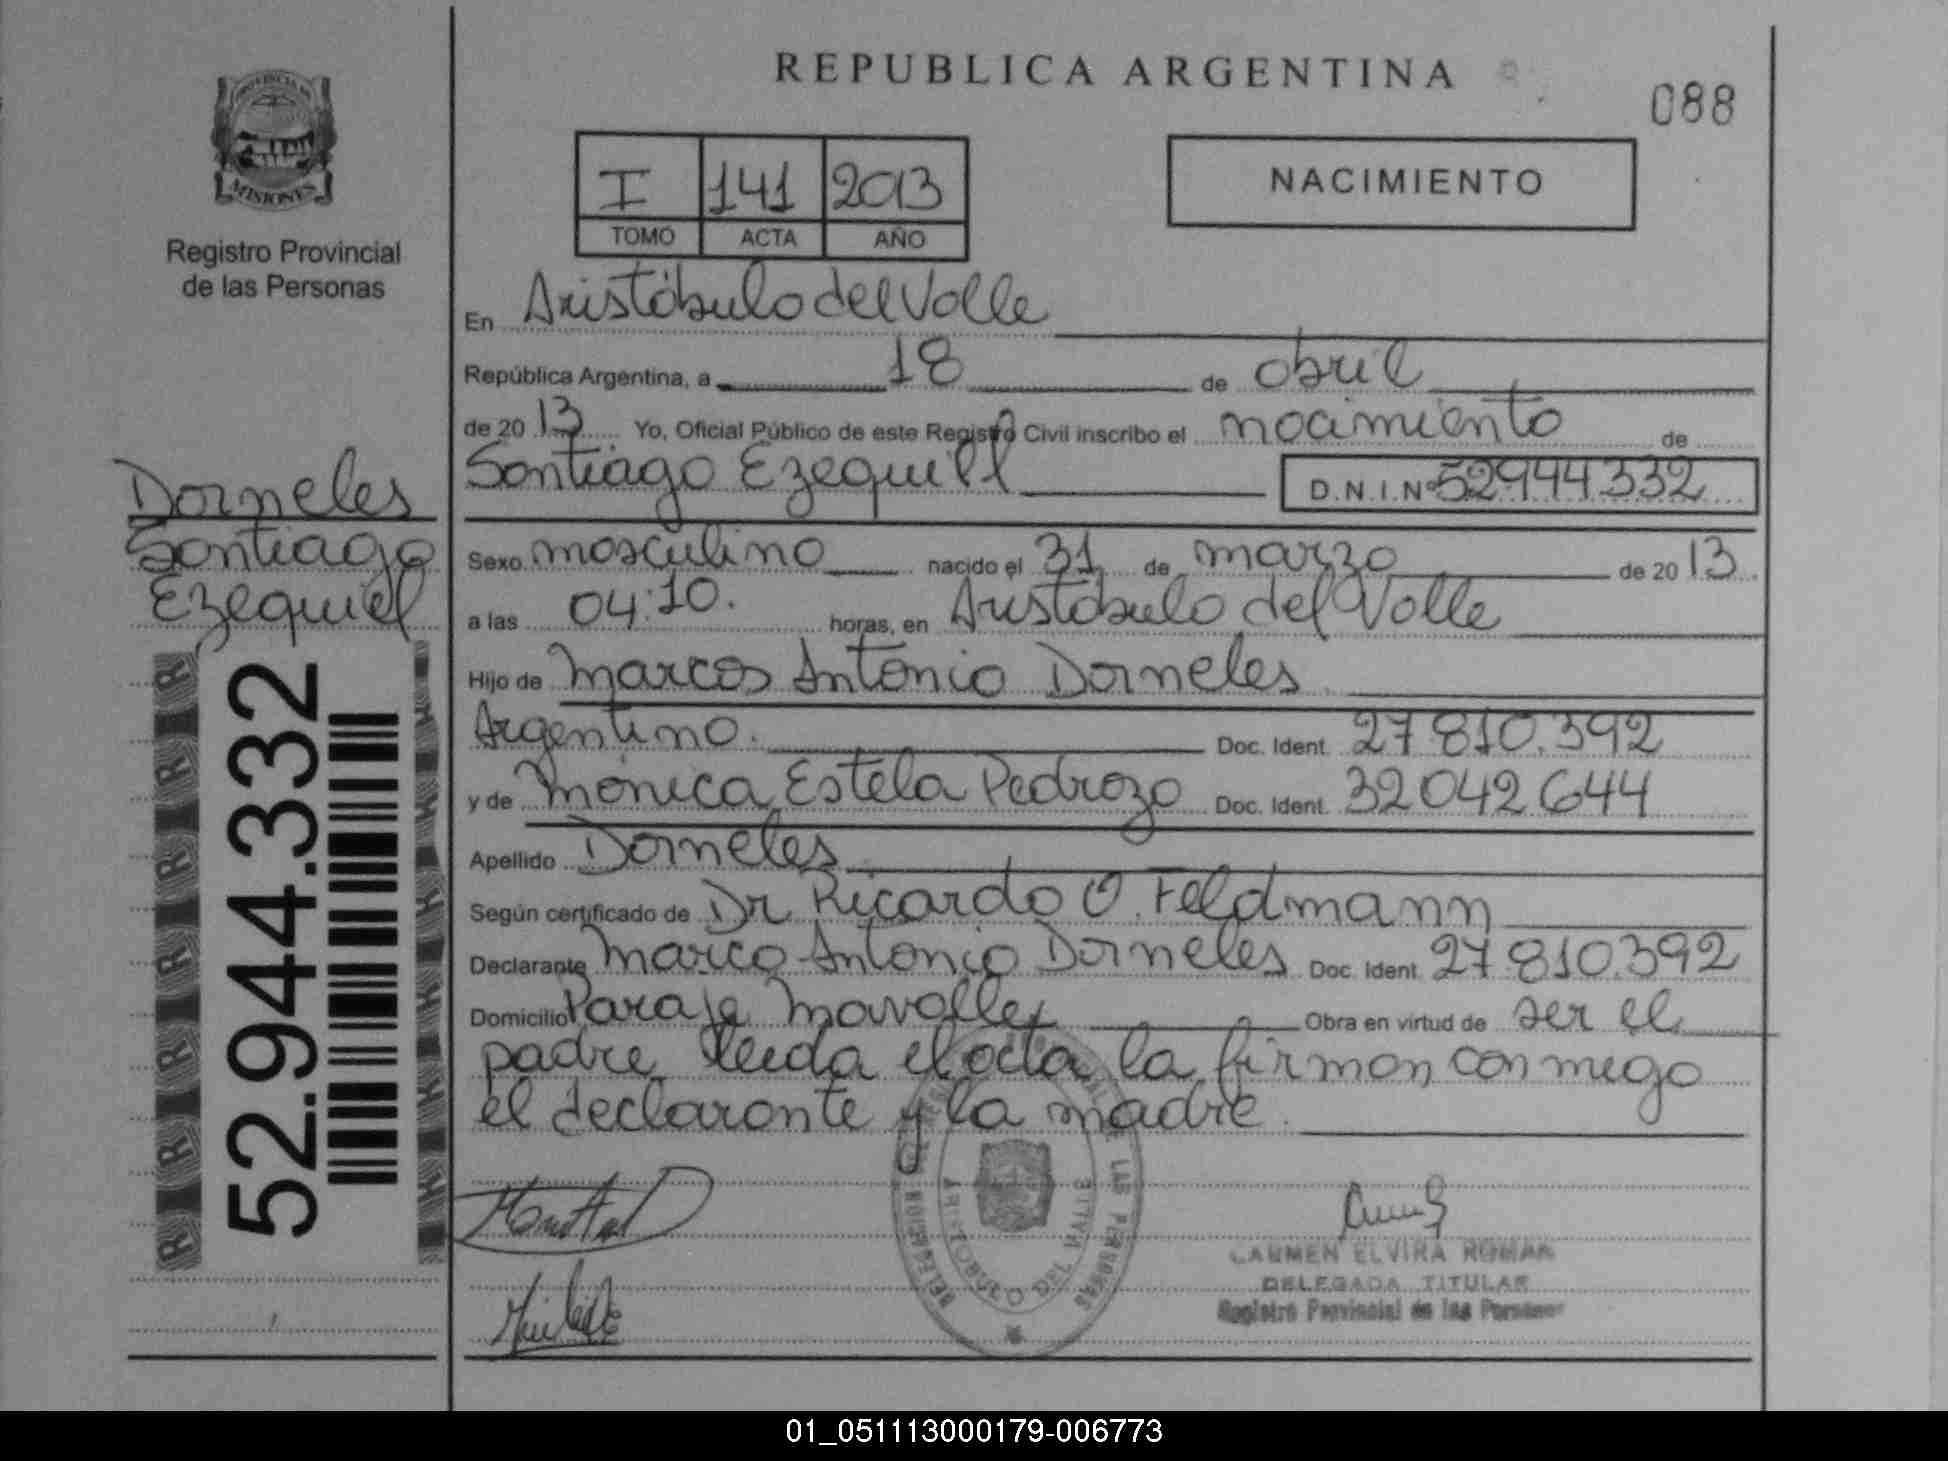 REPUBLICA ARGENTINA
088
PROVINCIA DE
MISIONES
Registro Provincial
de las Personas
I 141 2013
TOMO ACTA AÑO
NACIMIENTO
En Aristóbulo del Valle
República Argentina, a 18 de abril
de 2013 Yo, Oficial Público de este Registro Civil inscribo el nacimiento de
Santiago Ezequiel D.N.I.Nº 52944332
Dorneles
Santiago
Ezequiel
Sexo masculino nacido el 31 de marzo de 2013
a las 04:10. horas, en Aristóbulo del Valle
Hijo de Marcos Antonio Dorneles
Argentino. Doc. Ident. 27810.392
y de Mónica Estela Pedrozo Doc. Ident. 32042644
Apellido Dorneles
Según certificado de Dr Ricardo O. Feldmann
Declarante Marco Antonio Dorneles Doc. Ident. 27.810.392
Domicilio Paraje Mavalle Obra en virtud de ser el
padre leida el acta la firman conmigo
el declarante y la madre.
52.944.332
ARISTOBULO DEL VALLE
CARMEN ELVIRA ROMAN
DELEGADA TITULAR
Registro Provincial de las Personas
01_051113000179-006773